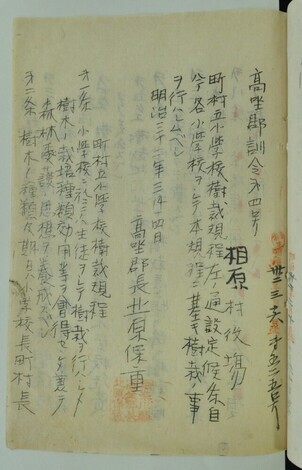 高坐郡訓令才四号
相原村役場
町村立小学校樹栽規程左ノ通設定候条自
今各小学校ヲシテ本規程ニ基キ樹栽ノ事
ヲ行ハシムベシ
明治三十二年三月十四日
高坐郡長北原保重
町村立小学校樹栽規程
才一条 小学校ニ於テハ生徒ヲシテ樹栽ヲ行ハシメ
樹木ノ栽培種類効用等ヲ会得セシメ兼テ
森林愛護ノ思想ヲ養成スベシ
才二条 樹木ノ種類及期日ハ小学校長町村長